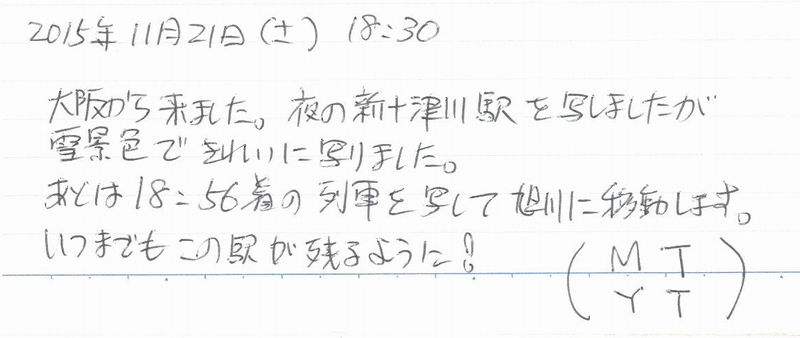 2015年11月21日(土) 18:30
大阪から来ました。夜の新十津川駅を写しましたが
雪景色できれいに写りました。
あとは18:56着の列車を写して旭川に移動します。
いつまでもこの駅が残るように!
(MT
YT)